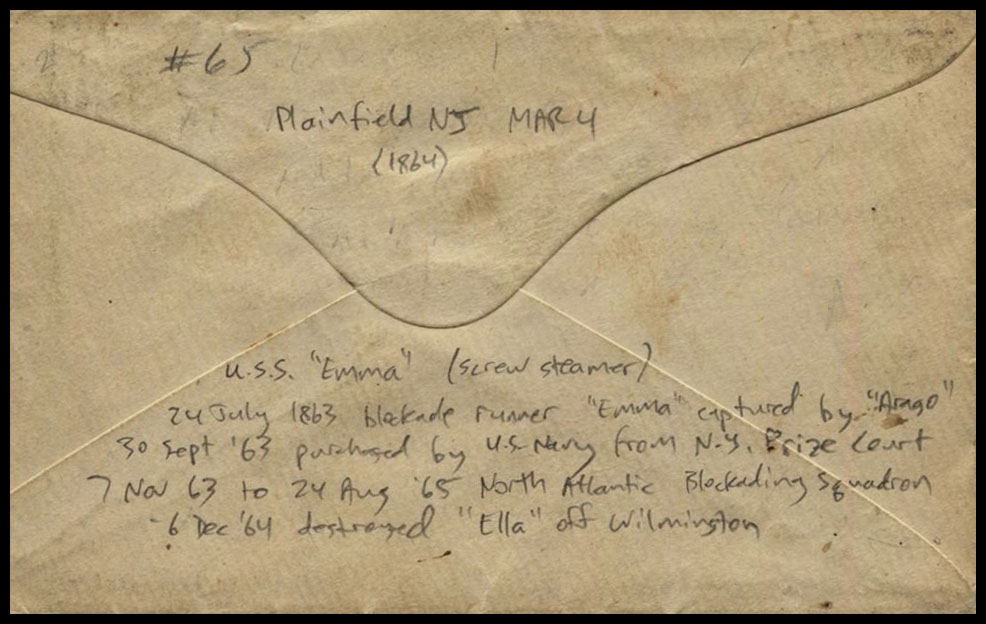 #65
Plainfield NJ MAR 4
(1864)
U.S.S. "Emma" (screw steamer)
24 July 1863 blockade runner "Emma" captured by "Arago"
30 Sept '63 purchased by U.S. Navy from N.Y. Prize Court
7 Nov 63 to 24 Aug '65 North Atlantic Blockading Squadron
6 Dec '64 destroyed "Ella" off Wilmington